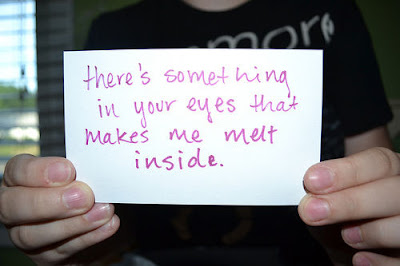 there's something
in your eyes that
makes me melt
inside.